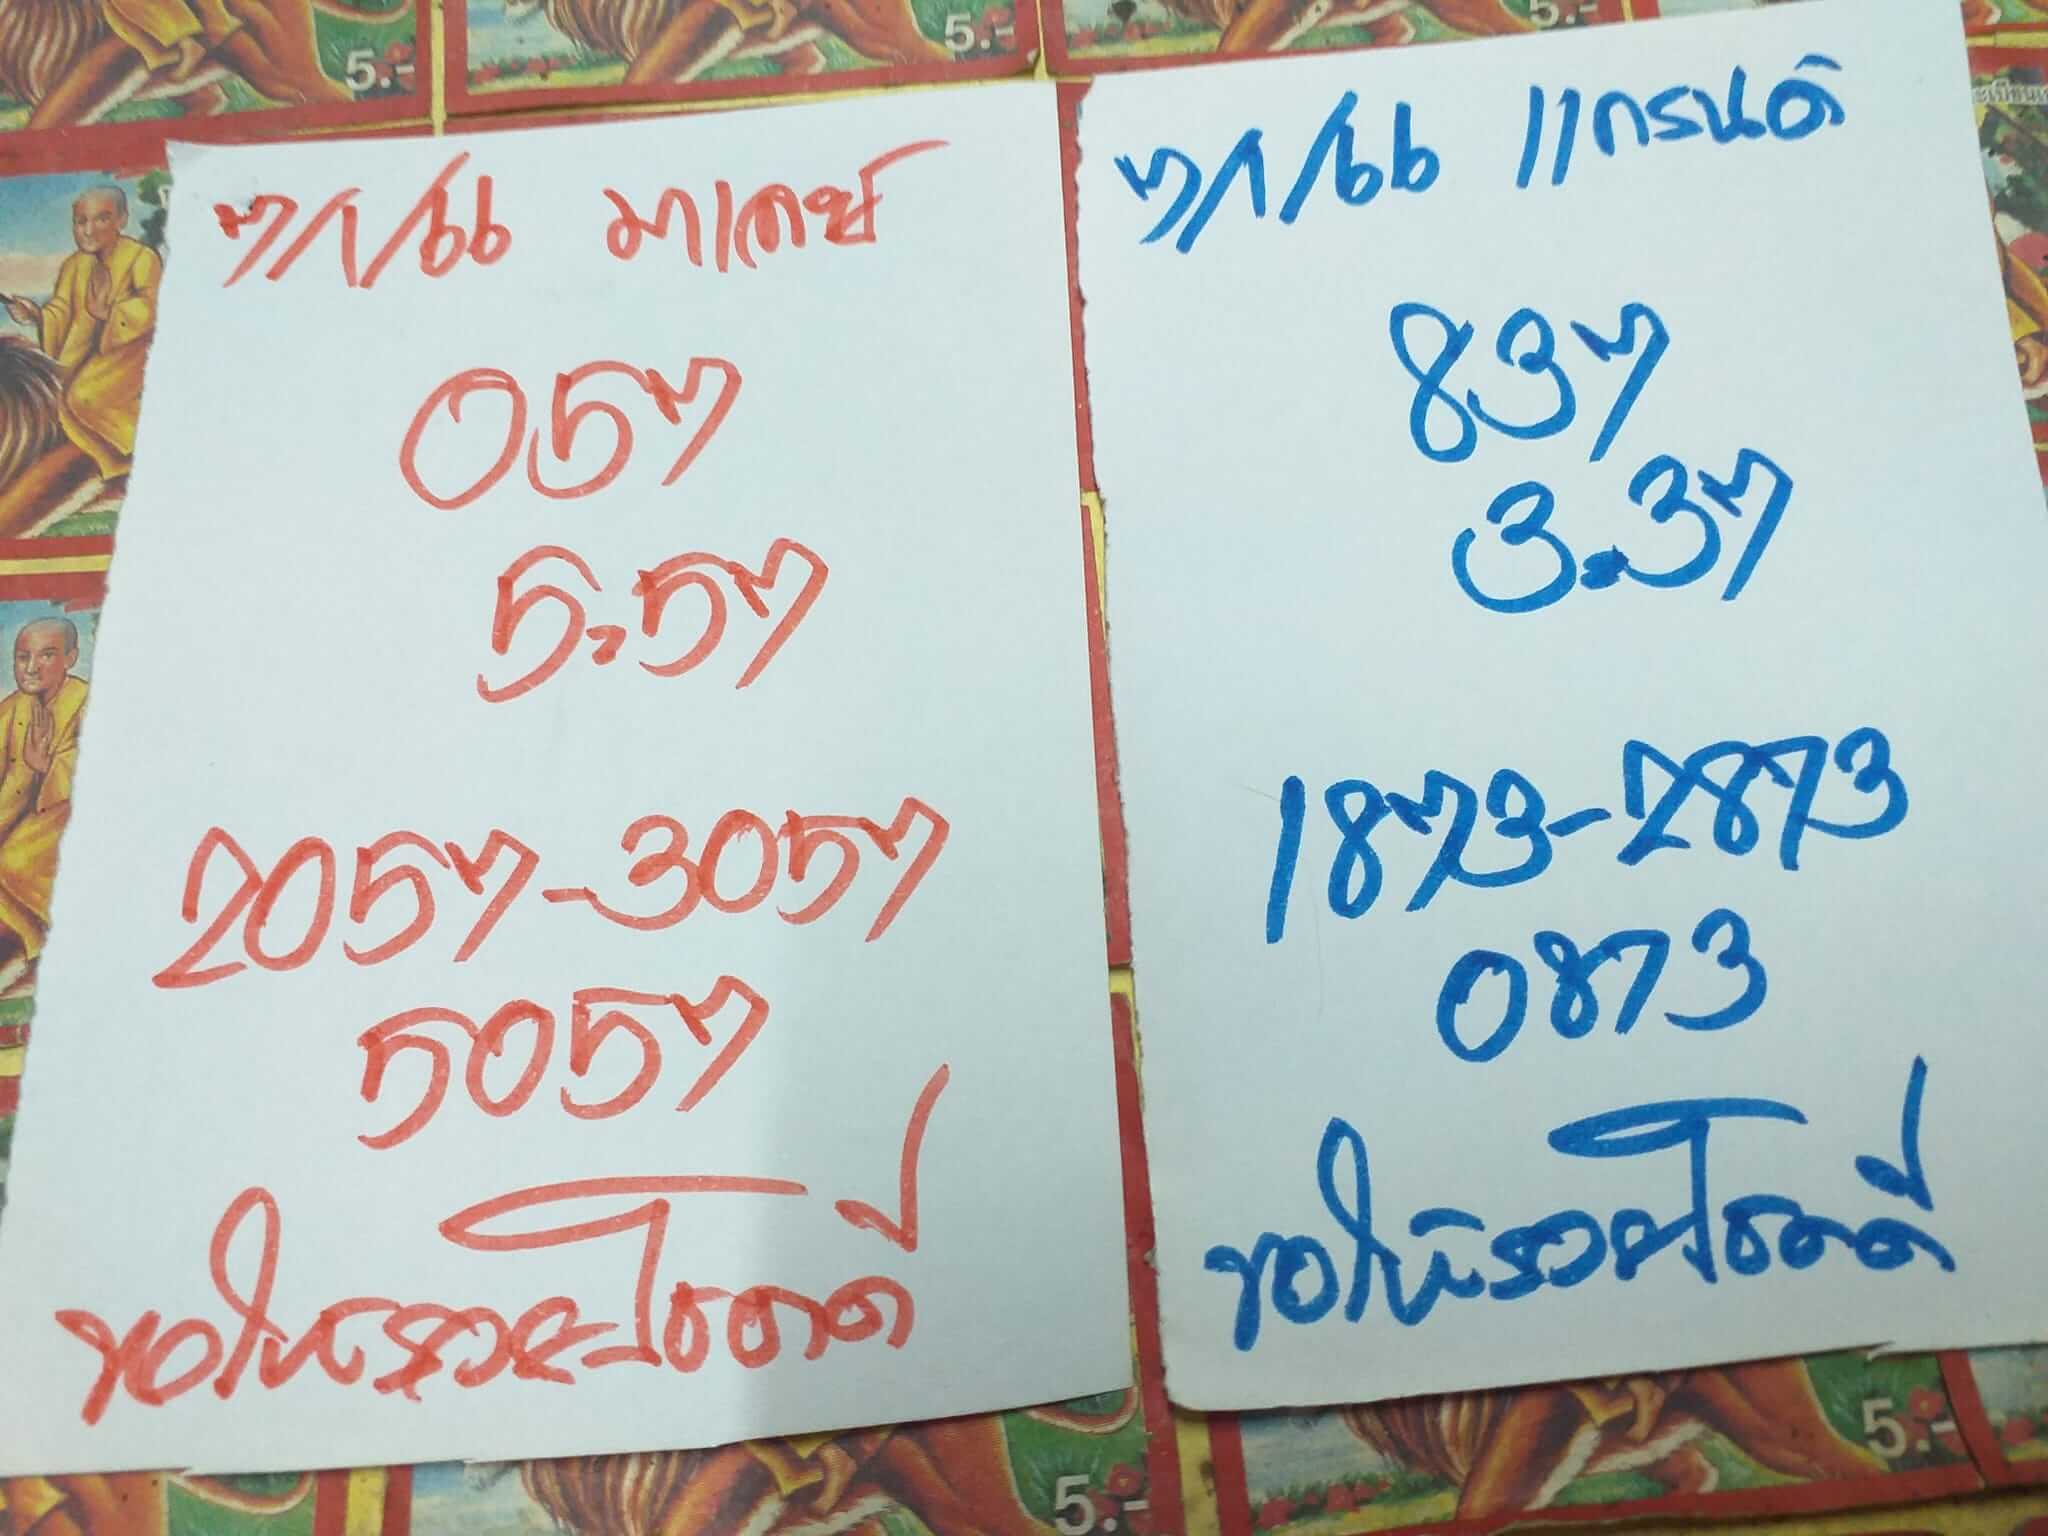 7/1/68 มาเลย์
057
5.57
2057-3057
5057
ขอให้รวยโชคดี
7/1/68 แกรนด์
837
3.37
1873-2873
0873
ขอให้รวยโชคดี
5.-
5.-
5.-
5.-
5.-